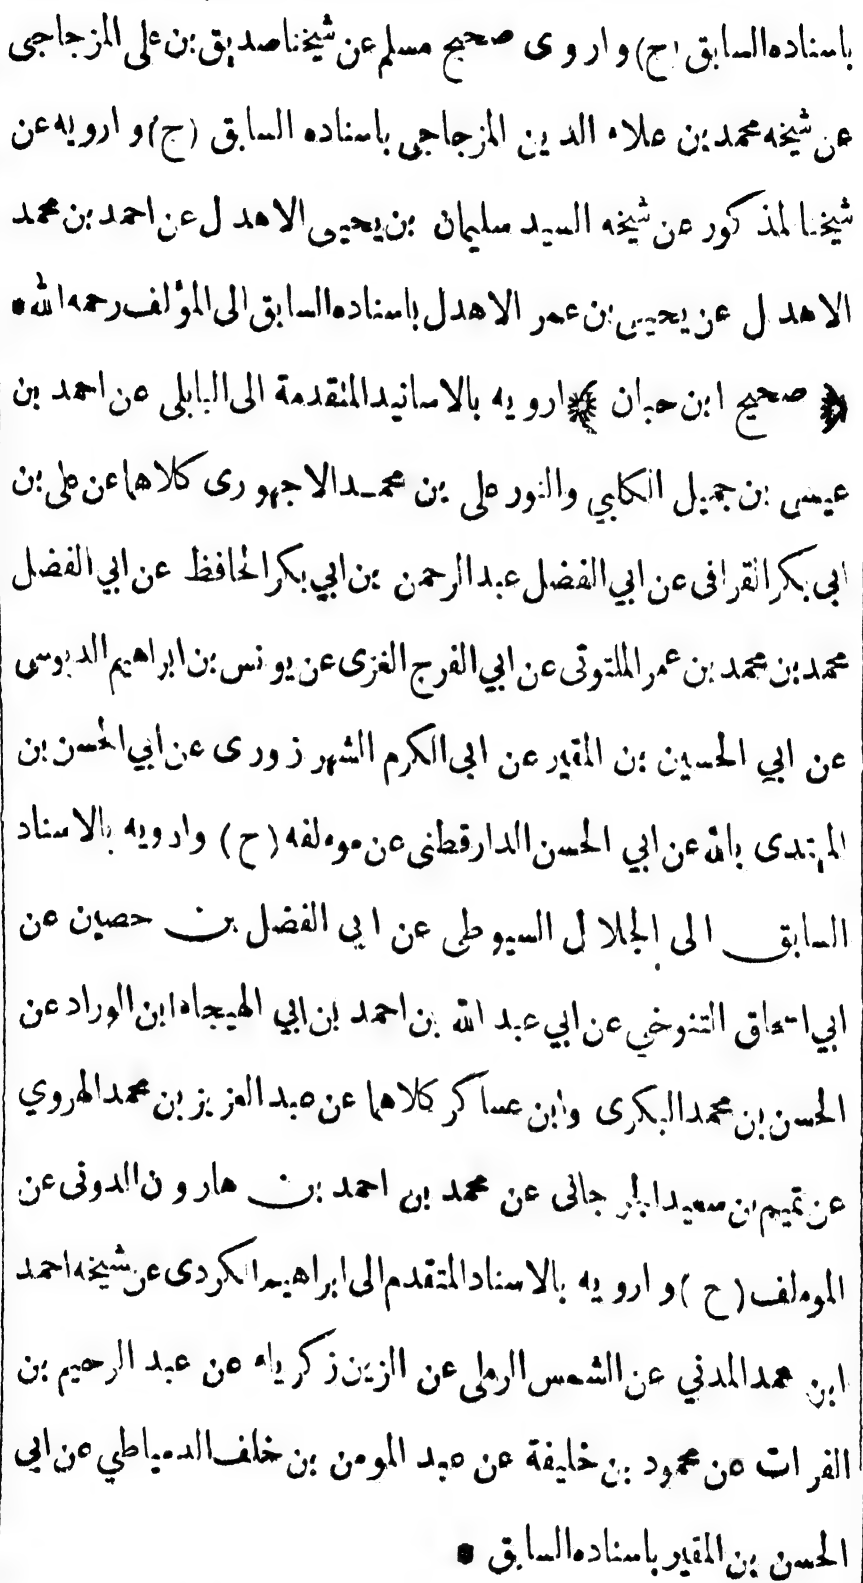 باسناده السابق (ح) واروى صحيح مسلم عن شيخنا صديق بن على المزجاجى
عن شيخه محمد بن علاء الدين المزجاجى باسناده السابق (ح) وارويه عن
شيخنا المذكور عن شيخه السيد سليمان بن يحيى الاهدل عن احمد بن محمد
الاهدل عن يحيى بن عمر الاهدل باسناده السابق الى المؤلف رحمه الله •
﴿ صحيح ابن حبان ﴾ ارويه بالاسانيد المتقدمة الى البابلى عن احمد بن
عيسى بن جميل الكابي والنور على بن محمد الاجهورى كلاهما عن على بن
ابى بكر القرافى عن ابي الفضل عبد الرحمن بن ابي بكر الحافظ عن ابي الفضل
محمد بن محمد بن عمر الملتوتى عن ابي الفرج الغزى عن يونس بن ابراهيم الدبوسى
عن ابي الحسين بن المقير عن ابى الكرم الشهرزورى عن ابي الحسن بن
المهتدى بالله عن ابي الحسن الدارقطنى عن موءلفه (ح) وارويه بالاسناد
السابق الى الجلال السيوطى عن ابي الفضل بن حصين عن
ابي اسحاق التنوخي عن ابي عبد الله بن احمد بن ابي الهيجاء ابن الوراد عن
الحسن بن محمد البكرى وابن عساكر كلاهما عن عبد العزيز بن محمد الهروي
عن تميم بن سعيد الجرجانى عن محمد بن احمد بن هارون الدونى عن
الموءلف (ح) وارويه بالاسناد المتقدم الى ابراهيم الكردى عن شيخه احمد
ابن محمد المدني عن الشمس الرملى عن الزين زكرياء عن عبد الرحيم بن
الفرات عن محمود بن خليفة عن عبد المومن بن خلف الدمياطي عن ابي
الحسن بن المقير باسناده السابق •